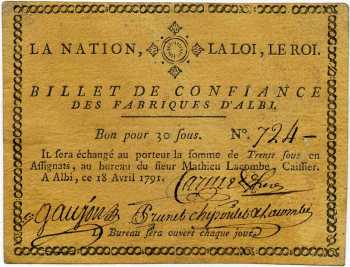 LA NATION, LA LOI, LE ROI.
BILLET DE CONFIANCE
DES FABRIQUES D'ALBI.
Bon pour 30 sous. No. 724
Il sera échangé au porteur la somme de Trente sous en
Assignats, au bureau du sieur Mathieu Lacombe, Caissier.
A Albi, ce 18 Avril 1791.
gaujon Brunet
Bureau sera ouvert chaque jour